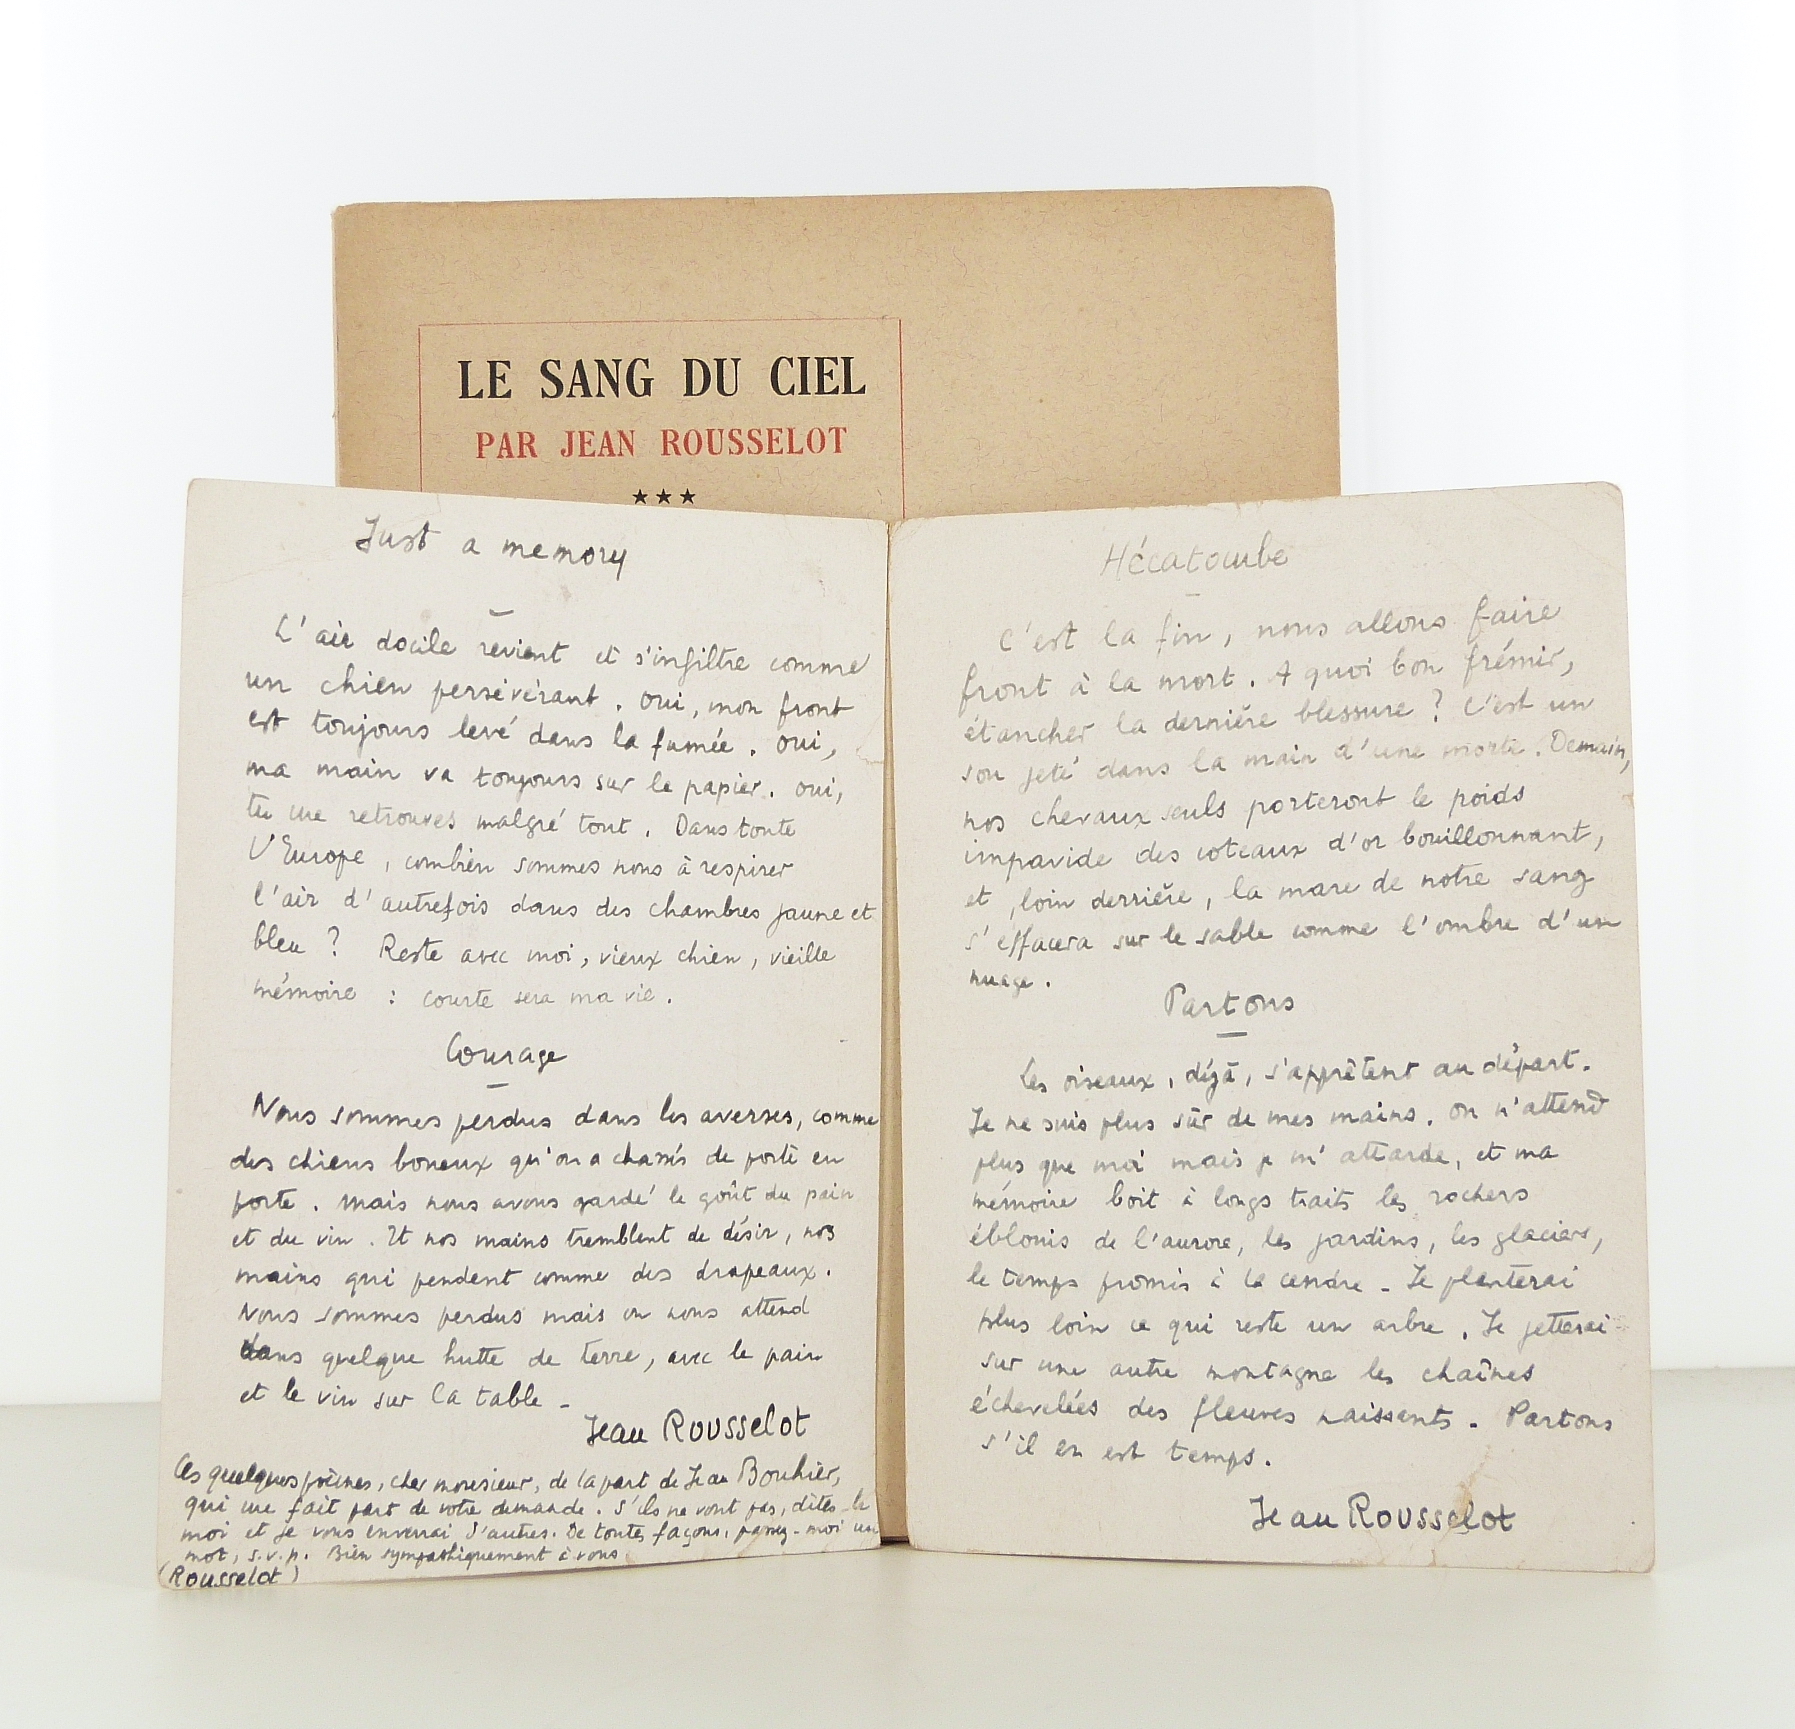 LE SANG DU CIEL
PAR JEAN ROUSSELOT
★★★
Just a memory
L'air docile revient et s'infiltre comme
un chien persévérant. Oui, mon front
est toujours levé dans la fumée. Oui,
ma main va toujours sur le papier. Oui,
tu me retrouves malgré tout. Dans toute
l'Europe, combien sommes nous à respirer
l'air d'autrefois dans des chambres jaune et
bleu ? Reste avec moi, vieux chien, vieille
mémoire : courte sera ma vie.
Courage
Nous sommes perdus dans les averses, comme
des chiens boneux qu'on a chassés de porte en
porte. Mais nous avons gardé le goût du pain
et du vin. Et nos mains tremblent de désir, nos
mains qui pendent comme des drapeaux.
Nous sommes perdus mais on nous attend
dans quelque hutte de terre, avec le pain
et le vin sur la table -
Jean Rousselot
Ces quelques poèmes, cher monsieur, de la part de Jean Bouhier,
qui me fait part de votre demande. S'ils ne vont pas, dites-le
moi et je vous enverrai d'autres. De toutes façons, passez-moi un
mot, s.v.p. Bien sympathiquement à vous
(Rousselot)
Hécatombe
C'est la fin, nous allons faire
front à la mort. A quoi bon frémir,
étancher la dernière blessure ? C'est un
sou jeté dans la main d'une morte. Demain,
nos chevaux seuls porteront le poids
impavide des coteaux d'or bouillonnant,
et, loin derrière, la mare de notre sang
s'effacera sur le sable comme l'ombre d'un
nuage.
Partons
Les oiseaux, déjà, s'apprêtent au départ.
Je ne suis plus sûr de mes mains. On n'attend
plus que moi mais je m'attarde, et ma
mémoire boit à longs traits les rochers
éblouis de l'aurore, les jardins, les glaciers,
le temps promis à la cendre - Je planterai
plus loin ce qui reste un arbre. Je jetterai
sur une autre montagne les chaînes
échevelées des fleuves naissants. Partons
s'il en est temps.
Jean Rousselot